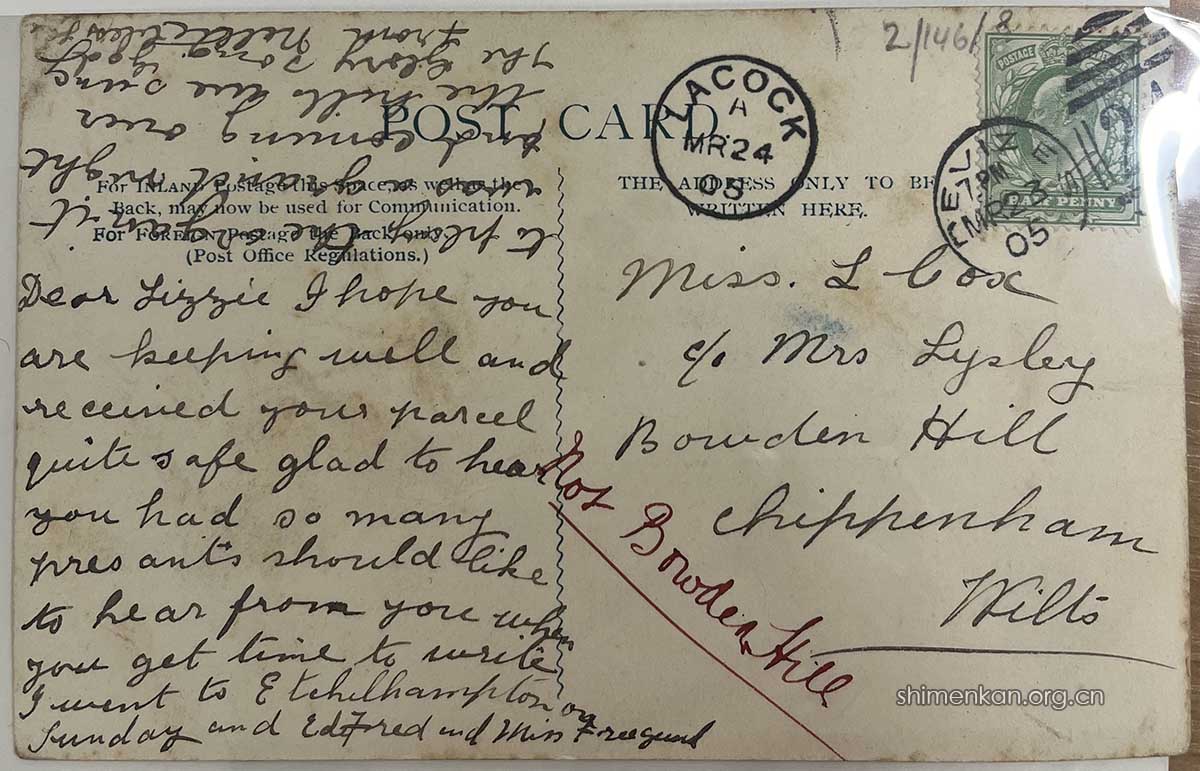 2/146/8
POSTAGE
HALF PENNY
POST CARD.
LACOCK
A
MR 24
05
7. PM
MR 23
05
For INLAND Postage this Space, as well as the
Back, may now be used for Communication.
For FOREIGN Postage the Back only.
(Post Office Regulations.)
THE ADDRESS ONLY TO BE
WRITTEN HERE.
Dear Lizzie I hope you
are keeping well and
received your parcel
quite safe glad to hear
you had so many
presants should like
to hear from you when
you get time to write
I went to Etchilhampton on
Sunday and Ed Fred and Miss
to play the
was a grand night
and coming over
the hills we sung
The Glory Song
from
Miss. L Cox
c/o Mrs Lysley
Bowden Hill
Chippenham
Wilts
Not Bowden Hill
shimenkan.org.cn